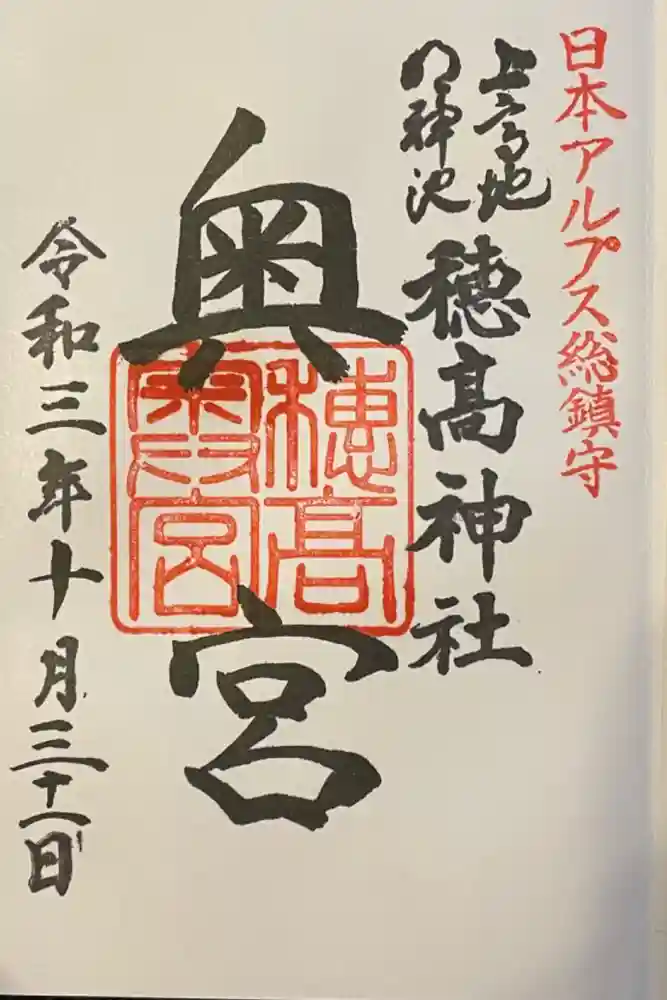 日本アルプス総鎮守
上高地
明神池
穂髙神社
奥宮
穂髙
奥宮
令和三年十月三十一日